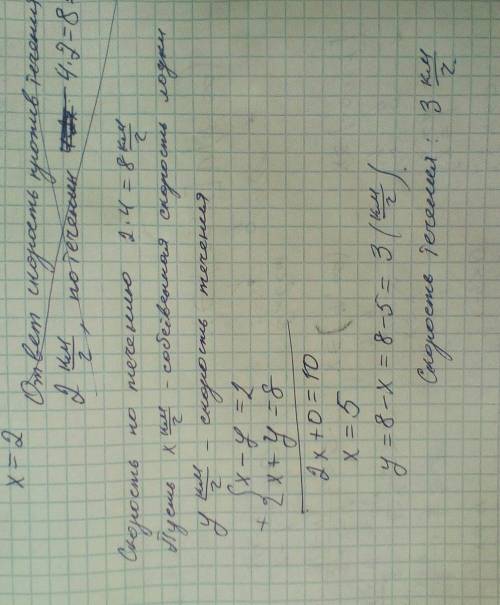 x = 2
Ответ скорость против течения
2 км/г, по течении 4·2=8
Скорость по течению 2·4 = 8 км/г
Пусть x км/г - собственная скорость лодки
y км/г - скорость течения
{ x - y = 2
+ { x + y = 8
2x + 0 = 10
x = 5
y = 8 - x = 8 - 5 = 3 (км/г).
Скорость течения: 3 км/г